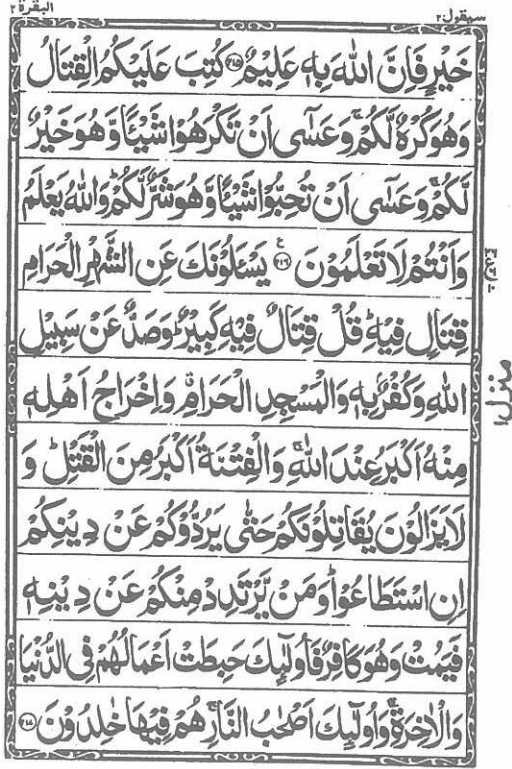 سيقول٢
البقرة٢
خَيْرٍ فَاِنَّ اللّٰهَ بِهٖ عَلِيْمٌ ﴿۲۱۵﴾ كُتِبَ عَلَيْكُمُ الْقِتَالُ
وَهُوَ كُرْهٌ لَّكُمْ ۚ وَعَسٰٓى اَنْ تَكْرَهُوْا شَيْئًا وَّهُوَ خَيْرٌ
لَّكُمْ ۚ وَعَسٰٓى اَنْ تُحِبُّوْا شَيْئًا وَّهُوَ شَرٌّ لَّكُمْ ؕ وَاللّٰهُ يَعْلَمُ
وَاَنْتُمْ لَا تَعْلَمُوْنَ ﴿۲۱۶﴾ يَسْـَٔلُوْنَكَ عَنِ الشَّهْرِ الْحَرَامِ
قِتَالٍ فِيْهِ ؕ قُلْ قِتَالٌ فِيْهِ كَبِيْرٌ ؕ وَصَدٌّ عَنْ سَبِيْلِ
اللّٰهِ وَكُفْرٌۢ بِهٖ وَالْمَسْجِدِ الْحَرَامِ ۗ وَاِخْرَاجُ اَهْلِهٖ
مِنْهُ اَكْبَرُ عِنْدَ اللّٰهِ ۚ وَالْفِتْنَةُ اَكْبَرُ مِنَ الْقَتْلِ ؕ وَ
لَا يَزَالُوْنَ يُقَاتِلُوْنَكُمْ حَتّٰى يَرُدُّوْكُمْ عَنْ دِيْنِكُمْ
اِنِ اسْتَطَاعُوْا ؕ وَمَنْ يَّرْتَدِدْ مِنْكُمْ عَنْ دِيْنِهٖ
فَيَمُتْ وَهُوَ كَافِرٌ فَاُولٰٓئِكَ حَبِطَتْ اَعْمَالُهُمْ فِى الدُّنْيَا
وَالْاٰخِرَةِ ۚ وَاُولٰٓئِكَ اَصْحٰبُ النَّارِ ۚ هُمْ فِيْهَا خٰلِدُوْنَ ﴿۲۱۷﴾
منزل١